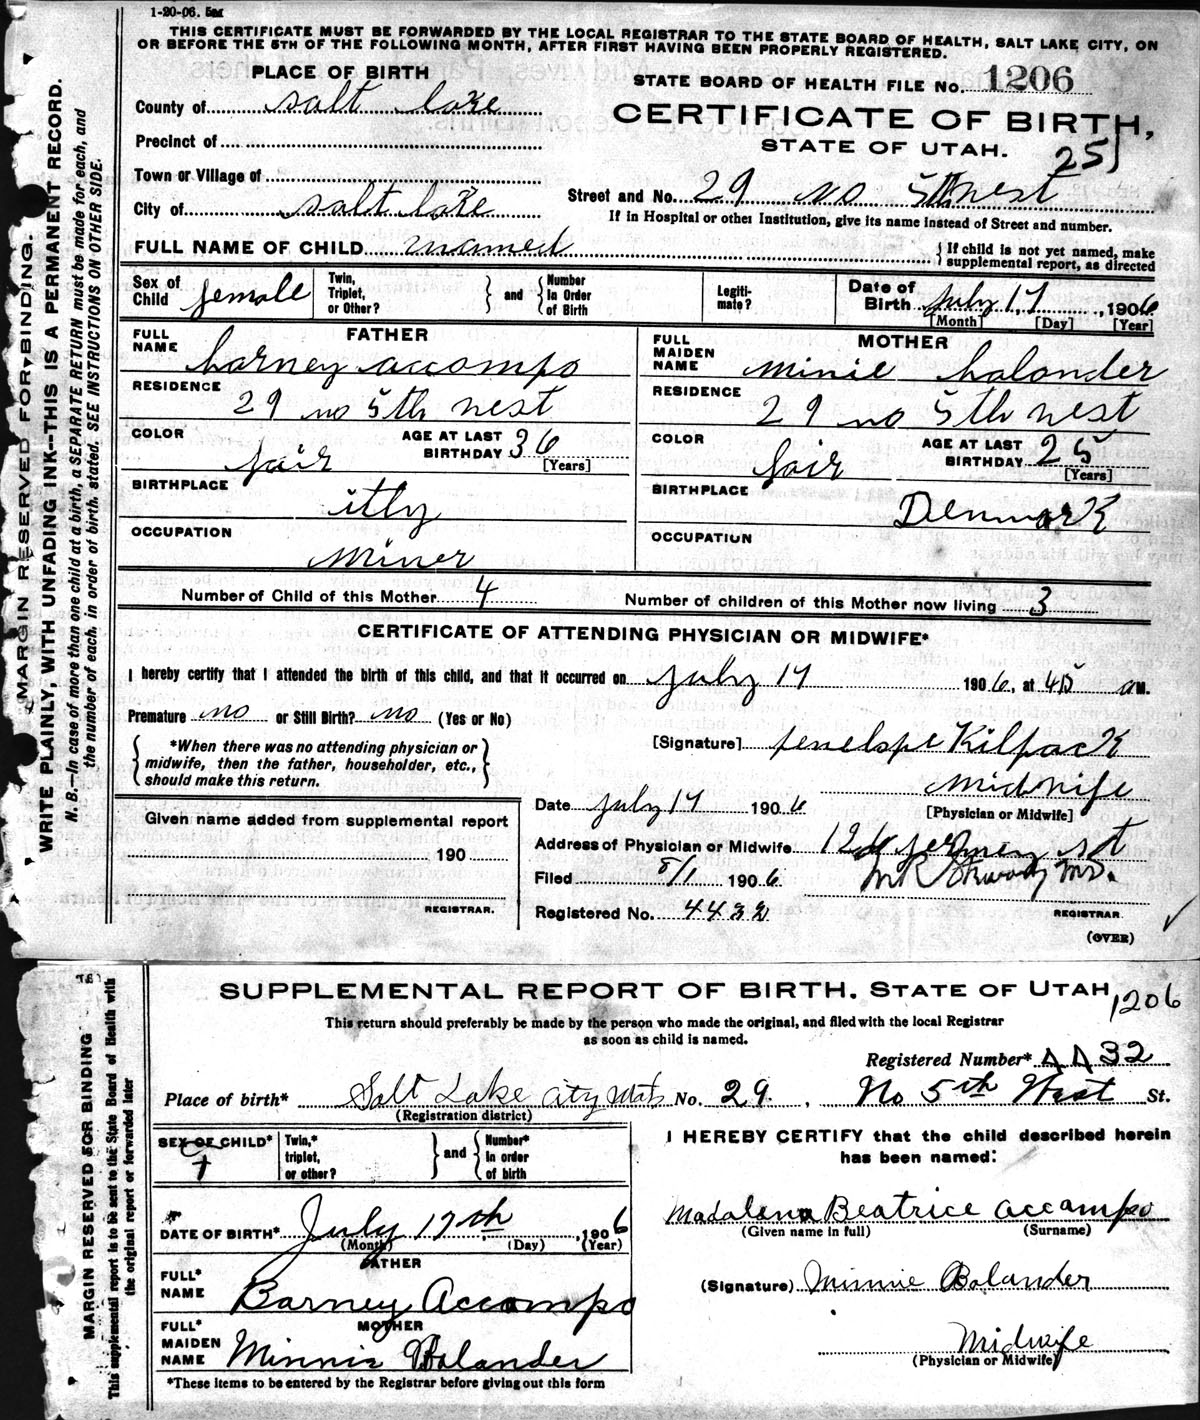 1-20-06. 5m
THIS CERTIFICATE MUST BE FORWARDED BY THE LOCAL REGISTRAR TO THE STATE BOARD OF HEALTH, SALT LAKE CITY, ON
OR BEFORE THE 5TH OF THE FOLLOWING MONTH, AFTER FIRST HAVING BEEN PROPERLY REGISTERED.
MARGIN RESERVED FOR BINDING.
WRITE PLAINLY, WITH UNFADING INK--THIS IS A PERMANENT RECORD.
N. B.—In case of more than one child at a birth, a SEPARATE RETURN must be made for each, and
the number of each, in order of birth, stated. SEE INSTRUCTIONS ON OTHER SIDE.
PLACE OF BIRTH
County of salt lake
Precinct of
Town or Village of
City of salt lake
STATE BOARD OF HEALTH FILE No. 1206
CERTIFICATE OF BIRTH,
STATE OF UTAH.
251
Street and No. 29 no 5th west
If in Hospital or other Institution, give its name instead of Street and number.
FULL NAME OF CHILD unamed
{ If child is not yet named, make
supplemental report, as directed
Sex of Child female
Twin, Triplet, or Other? } and { Number in Order of Birth
Legiti-mate?
Date of Birth July 17, 1906
[Month] [Day] [Year]
FATHER
FULL NAME barney accompo
RESIDENCE
29 no 5th west
COLOR fair AGE AT LAST BIRTHDAY 36
[Years]
BIRTHPLACE itly
OCCUPATION
miner
MOTHER
FULL MAIDEN NAME minie balander
RESIDENCE
29 no 5th west
COLOR fair AGE AT LAST BIRTHDAY 25
[Years]
BIRTHPLACE
Denmark
OCCUPATION
Number of Child of this Mother 4 Number of children of this Mother now living 3
CERTIFICATE OF ATTENDING PHYSICIAN OR MIDWIFE*
I hereby certify that I attended the birth of this child, and that it occurred on July 17 1906, at 415 a M.
Premature no or Still Birth? no (Yes or No)
{ *When there was no attending physician or
midwife, then the father, householder, etc.,
should make this return. }
[Signature] penelope Kilpack
midwife
[Physician or Midwife]
Date July 17 1906
Address of Physician or Midwife st
Filed 8/1 1906
Registered No. 4432
M.D.
REGISTRAR.
(OVER)
Given name added from supplemental report
190
REGISTRAR.
SUPPLEMENTAL REPORT OF BIRTH. STATE OF UTAH
1206
This return should preferably be made by the person who made the original, and filed with the local Registrar
as soon as child is named.
MARGIN RESERVED FOR BINDING
This supplemental report is to be sent to the State Board of Health with
the original report or forwarded later
Registered Number* 4432
Place of birth* Salt Lake City Utah No. 29, No 5th West St.
(Registration district)
SEX OF CHILD* f
Twin,* triplet, or other? } and { Number* in order of birth
DATE OF BIRTH* July 17th, 1906
(Month) (Day) (Year)
FATHER
FULL* NAME Barney Accompo
MOTHER
FULL* MAIDEN NAME Minnie Bolander
*These items to be entered by the Registrar before giving out this form
I HEREBY CERTIFY that the child described herein
has been named:
Madalena Beatrice accampo
(Given name in full) (Surname)
(Signature) Minnie Bolander
Midwife
(Physician or Midwife)